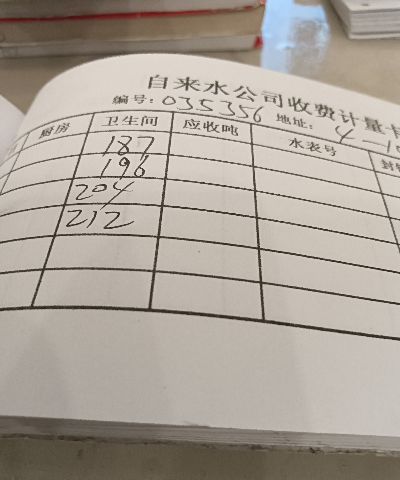 自来水公司收费计量卡
编号: 035356 地址: 4-10
厨房 卫生间 应收吨 水表号
187
196
204
212